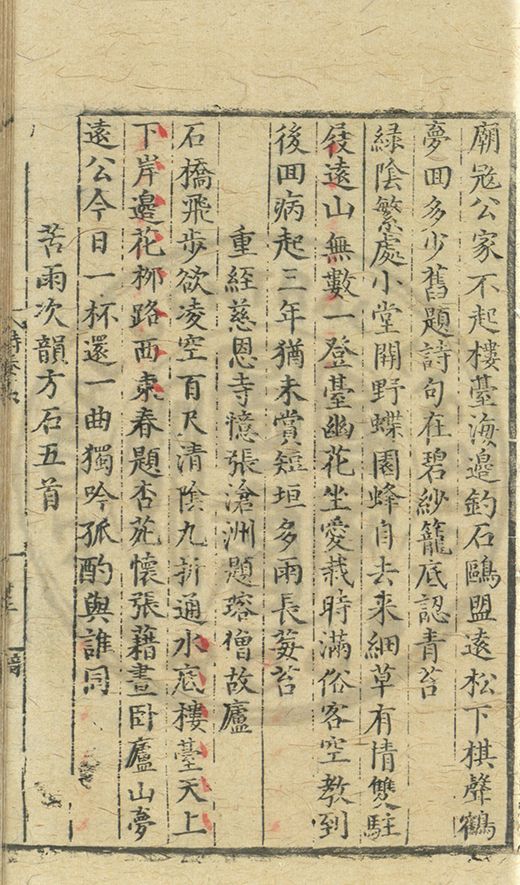 廟冦公家不起樓臺海邊釣石鷗盟遠松下棋聲鶴
夢囬多少舊題詩句在碧紗籠底認青苔
綠陰繁處小堂開野蝶園蜂自去來細草有情雙駐
屐遠山無數一登臺幽花坐愛栽時滿俗客空教到
後囬病起三年猶未賞短垣多雨長莓苔
重經慈恩寺憶張滄洲題瑢僧故廬
石橋飛步欲凌空百尺清陰九折通水底樓臺天上
下岸邊花栁路西東春題杏苑懷張藉晝卧廬山夢
遠公今日一杯還一曲獨吟孤酌與誰同
苦雨次韻方石五首